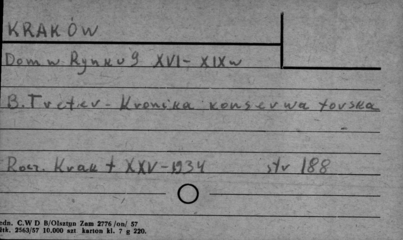 KRAKÓW
Dom w Rynku 9 XVI-XIX w
B. Treter - Kronika konserwatorska
Rocz. Krak t XXV-1934 str 188
edn. C.W D B/Olsztyn Zam 2776/on/ 57
isk. 2563/57 10.000 szt karton kl. ? g 220.